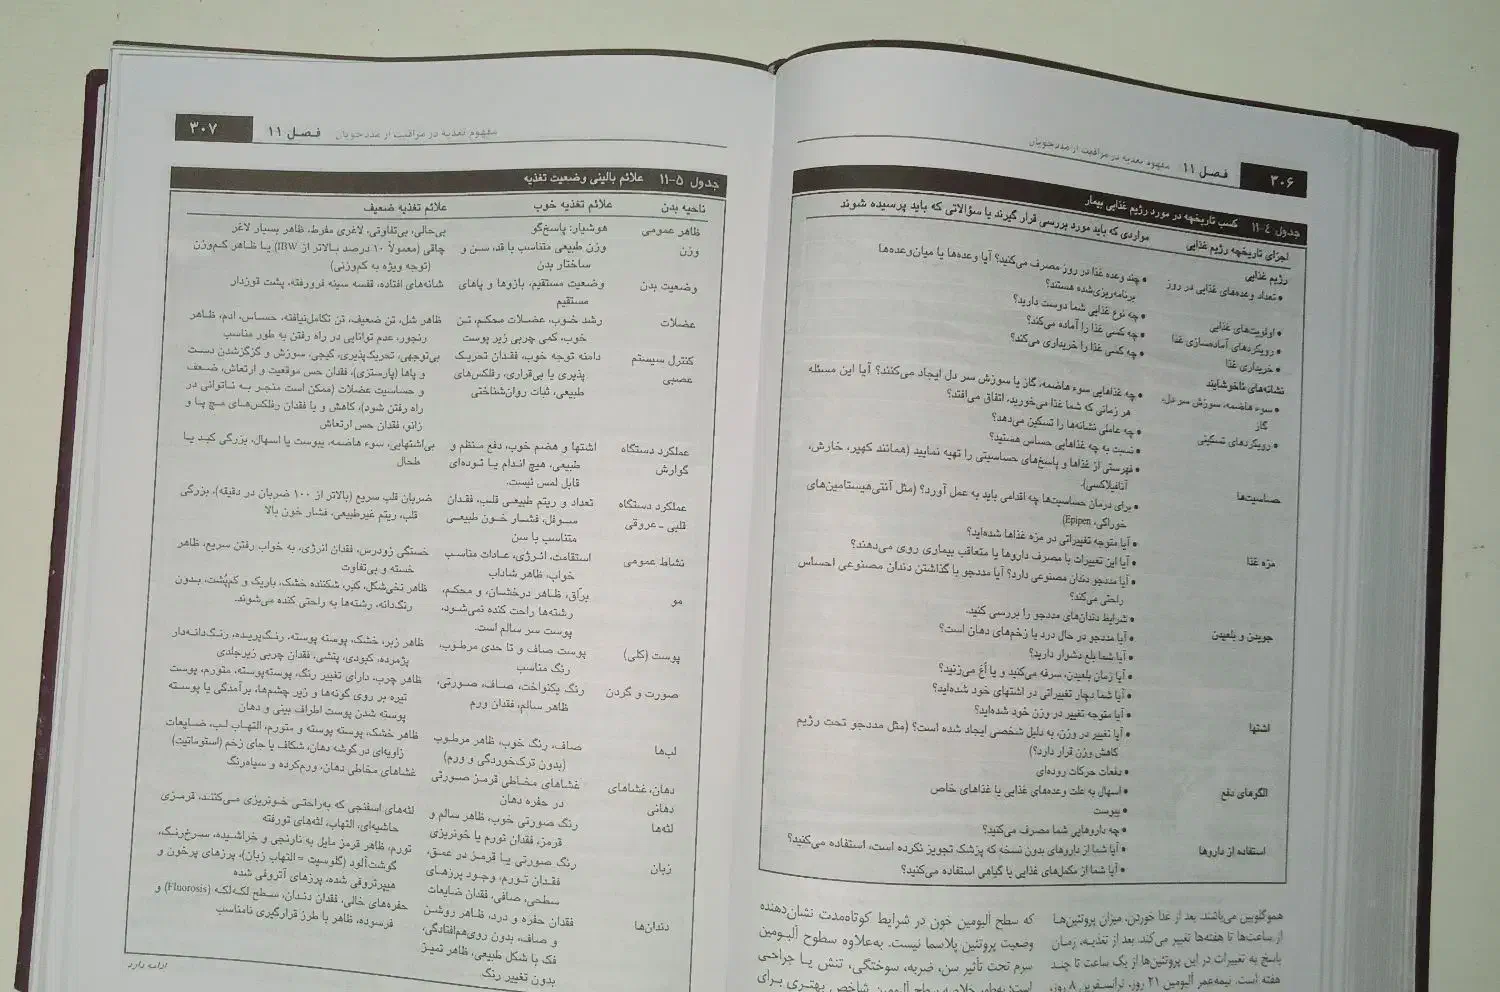 ۳۰۶
فصل ۱۱ مفهوم تغذیه در مراقبت از مددجویان
جدول ۴-۱۱ کسب تاریخچه در مورد رژیم غذایی بیمار
اجزای تاریخچه رژیم غذایی مواردی که باید مورد بررسی قرار گیرند یا سؤالاتی که باید پرسیده شوند
رژیم غذایی
• تعداد وعده‌های غذایی در روز • چند وعده غذا در روز مصرف می‌کنید؟ آیا وعده‌ها یا میان‌وعده‌ها
برنامه‌ریزی‌شده هستند؟
• اولویت‌های غذایی • چه نوع غذایی شما دوست دارید؟
• رویکردهای آماده‌سازی غذا • چه کسی غذا را آماده می‌کند؟
• خریداری غذا • چه کسی غذا را خریداری می‌کند؟
نشانه‌های ناخوشایند
• سوء هاضمه، سوزش سر دل، • چه غذاهایی سوء هاضمه، گاز یا سوزش سر دل ایجاد می‌کنند؟ آیا این مسئله
گاز هر زمانی که شما غذا می‌خورید، اتفاق می‌افتد؟
• رویکردهای تسکینی • چه عاملی نشانه‌ها را تسکین می‌دهد؟
• نسبت به چه غذاهایی حساس هستید؟
حساسیت‌ها • فهرستی از غذاها و پاسخ‌های حساسیتی را تهیه نمایید (همانند کهیر، خارش،
آنافیلاکسی).
• برای درمان حساسیت‌ها چه اقدامی باید به عمل آورد؟ (مثل آنتی‌هیستامین‌های
خوراکی، Epipen)
مزه غذا • آیا متوجه تغییراتی در مزه غذاها شده‌اید؟
• آیا این تغییرات با مصرف داروها یا متعاقب بیماری روی می‌دهند؟
جویدن و بلعیدن • آیا مددجو دندان مصنوعی دارد؟ آیا مددجو با گذاشتن دندان مصنوعی احساس
راحتی می‌کند؟
• شرایط دندان‌های مددجو را بررسی کنید.
• آیا مددجو در حال درد یا زخم‌های دهان است؟
• آیا شما بلع دشوار دارید؟
• آیا زمان بلعیدن، سرفه می‌کنید و یا أغ می‌زنید؟
اشتها • آیا شما دچار تغییراتی در اشتهای خود شده‌اید؟
• آیا متوجه تغییر در وزن خود شده‌اید؟
• آیا تغییر در وزن، به دلیل شخصی ایجاد شده است؟ (مثل مددجو تحت رژیم
کاهش وزن قرار دارد؟)
الگوهای دفع • دفعات حرکات روده‌ای
• اسهال به علت وعده‌های غذایی یا غذاهای خاص
• یبوست
استفاده از داروها • چه داروهایی شما مصرف می‌کنید؟
• آیا شما از داروهای بدون نسخه که پزشک تجویز نکرده است، استفاده می‌کنید؟
• آیا شما از مکمل‌های غذایی یا گیاهی استفاده می‌کنید؟
هموگلوبین می‌باشند. بعد از غذا خوردن، میزان پروتئین‌ها
از ساعت‌ها تا هفته‌ها تغییر می‌کند. بعد از تغذیه، زمان
پاسخ به تغییرات در این پروتئین‌ها از یک ساعت تا چند
هفته است. نیمه‌عمر آلبومین ۲۱ روز، ترانسفرین ۸ روز،
که سطح آلبومین خون در شرایط کوتاه‌مدت نشان‌دهنده
وضعیت پروتئین پلاسما نیست. به‌علاوه سطوح آلبومین
سرم تحت تأثیر سن، ضربه، سوختگی، تنش یا جراحی
است؛ به‌طور خلاصه سطح آلبومین شاخص بهتری برای
مفهوم تغذیه در مراقبت از مددجویان فصل ۱۱ ۳۰۷
جدول ۵-۱۱ علائم بالینی وضعیت تغذیه
ناحیه بدن علائم تغذیه خوب علائم تغذیه ضعیف
ظاهر عمومی هوشیار؛ پاسخ‌گو بی‌حالی، بی‌تفاوتی، لاغری مفرط، ظاهر بسیار لاغر
وزن وزن طبیعی متناسب با قد، سن و چاقی (معمولاً ۱۰ درصد بالاتر از IBW) یا ظاهر کم‌وزن
ساختار بدن (توجه ویژه به کم‌وزنی)
وضعیت بدن وضعیت مستقیم، بازوها و پاهای شانه‌های افتاده، قفسه سینه فرورفته، پشت قوزدار
مستقیم
عضلات رشد خوب، عضلات محکم، تن ظاهر شل، تن ضعیف، تن تکامل‌نیافته، حساس، ادم، ظاهر
خوب، کمی چربی زیر پوست رنجور، عدم توانایی در راه رفتن به طور مناسب
کنترل سیستم دامنه توجه خوب، فقدان تحریک بی‌توجهی، تحریک‌پذیری، گیجی، سوزش و گزگزشدن دست
عصبی پذیری یا بی‌قراری، رفلکس‌های و پاها (پارستزی)، فقدان حس موقعیت و ارتعاش، ضعف
طبیعی، ثبات روان‌شناختی و حساسیت عضلات (ممکن است منجر به ناتوانی در
راه رفتن شود)، کاهش و یا فقدان رفلکس‌های مچ پا و
زانو، فقدان حس ارتعاش
عملکرد دستگاه اشتها و هضم خوب، دفع منظم و بی‌اشتهایی، سوء هاضمه، یبوست یا اسهال، بزرگی کبد یا
گوارش طبیعی، هیچ اندام یا توده‌ای طحال
قابل لمس نیست.
عملکرد دستگاه تعداد و ریتم طبیعی قلب، فقدان ضربان قلب سریع (بالاتر از ۱۰۰ ضربان در دقیقه)، بزرگی
قلبی ـ عروقی سوفل، فشار خون طبیعی قلب، ریتم غیرطبیعی، فشار خون بالا
متناسب با سن
نشاط عمومی استقامت، انرژی، عادات مناسب خستگی زودرس، فقدان انرژی، به خواب رفتن سریع، ظاهر
خواب، ظاهر شاداب خسته و بی‌تفاوت
مو برّاق، ظاهر درخشان، و محکم، ظاهر نخی‌شکل، کبر، شکننده خشک، باریک و کم‌پشت، بدون
رشته‌ها راحت کنده نمی‌شود، رنگ‌دانه، رشته‌ها به راحتی کنده می‌شوند.
پوست سر سالم است.
پوست (کلی) پوست صاف و تا حدی مرطوب، ظاهر زبر، خشک، پوسته پوسته، رنگ‌پریده، رنگ‌دانه‌دار
رنگ مناسب پژمرده، کبودی، پتشی، فقدان چربی زیرجلدی
صورت و گردن رنگ یکنواخت، صاف، صورتی، ظاهر چرب، دارای تغییر رنگ، پوسته‌پوسته، متورم، پوست
ظاهر سالم، فقدان ورم تیره بر روی گونه‌ها و زیر چشم‌ها، برآمدگی یا پوسته
پوسته شدن پوست اطراف بینی و دهان
لب‌ها صاف، رنگ خوب، ظاهر مرطوب ظاهر خشک، پوسته پوسته و متورم، التهاب لب، ضایعات
(بدون ترک‌خوردگی و ورم) زاویه‌ای در گوشه دهان، شکاف یا جای زخم (استوماتیت)
دهان، غشاهای غشاهای مخاطی قرمز صورتی غشاهای مخاطی دهان، ورم‌کرده و سیاه‌رنگ
دهانی در حفره دهان
لثه‌ها رنگ صورتی خوب، ظاهر سالم و لثه‌های اسفنجی که به‌راحتی خونریزی می‌کنند، قرمزی
قرمز، فقدان تورم یا خونریزی حاشیه‌ای، التهاب، لثه‌های تورفته
زبان رنگ صورتی یا قرمز در عمق، تورم، ظاهر قرمز مایل به نارنجی و خراشیده، سرخ‌رنگ،
فقدان تورم، وجود پرزهای گوشت‌آلود (گلوسیت = التهاب زبان)، پرزهای پرخون و
سطحی، صافی، فقدان ضایعات هیپرتروفی شده، پرزهای آتروفی شده
دندان‌ها فقدان حفره و درد، ظاهر روشن حفره‌های خالی، فقدان دندان، سطح لکه‌لکه (Fluorosis) و
و صاف، بدون روی‌هم‌افتادگی، فرسوده، ظاهر با طرز قرارگیری نامناسب
فک با شکل طبیعی، ظاهر تمیز
بدون تغییر رنگ
ادامه دارد